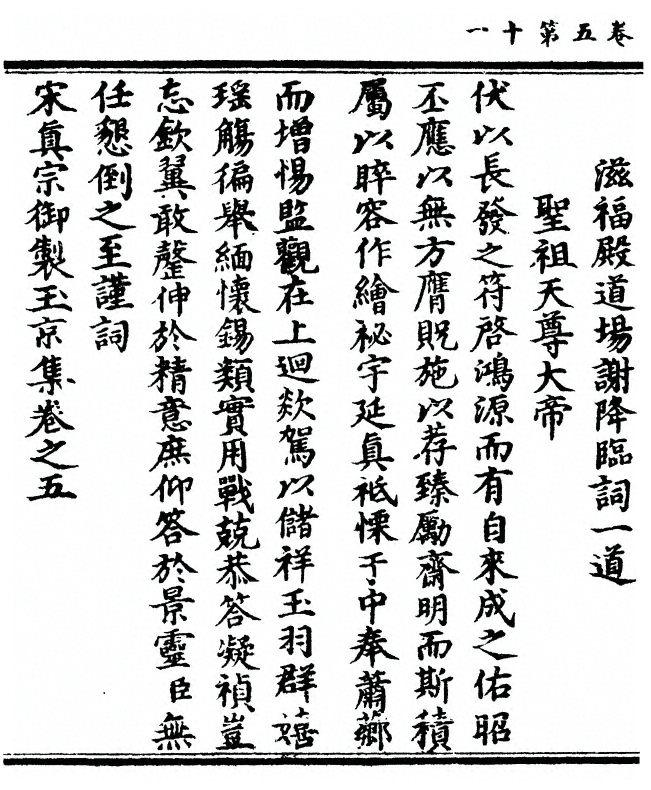 卷五第十一
滋福殿道場謝降臨詞一道
聖祖天尊大帝
伏以長發之符啓鴻源而有自來成之佑昭
丕應以無方膺貺施以荐臻勵齋明而斯積
屬以睟容作繪祕宇延真祗慄于中奉蕭薌
而增惕監觀在上迴欻駕以儲祥玉羽群嬉
瑶觴徧舉緬懷錫類實用戰兢恭答凝禎豈
忘欽翼敢罄伸於精意庶仰答於景靈臣無
任懇倒之至謹詞
宋真宗御製玉京集卷之五